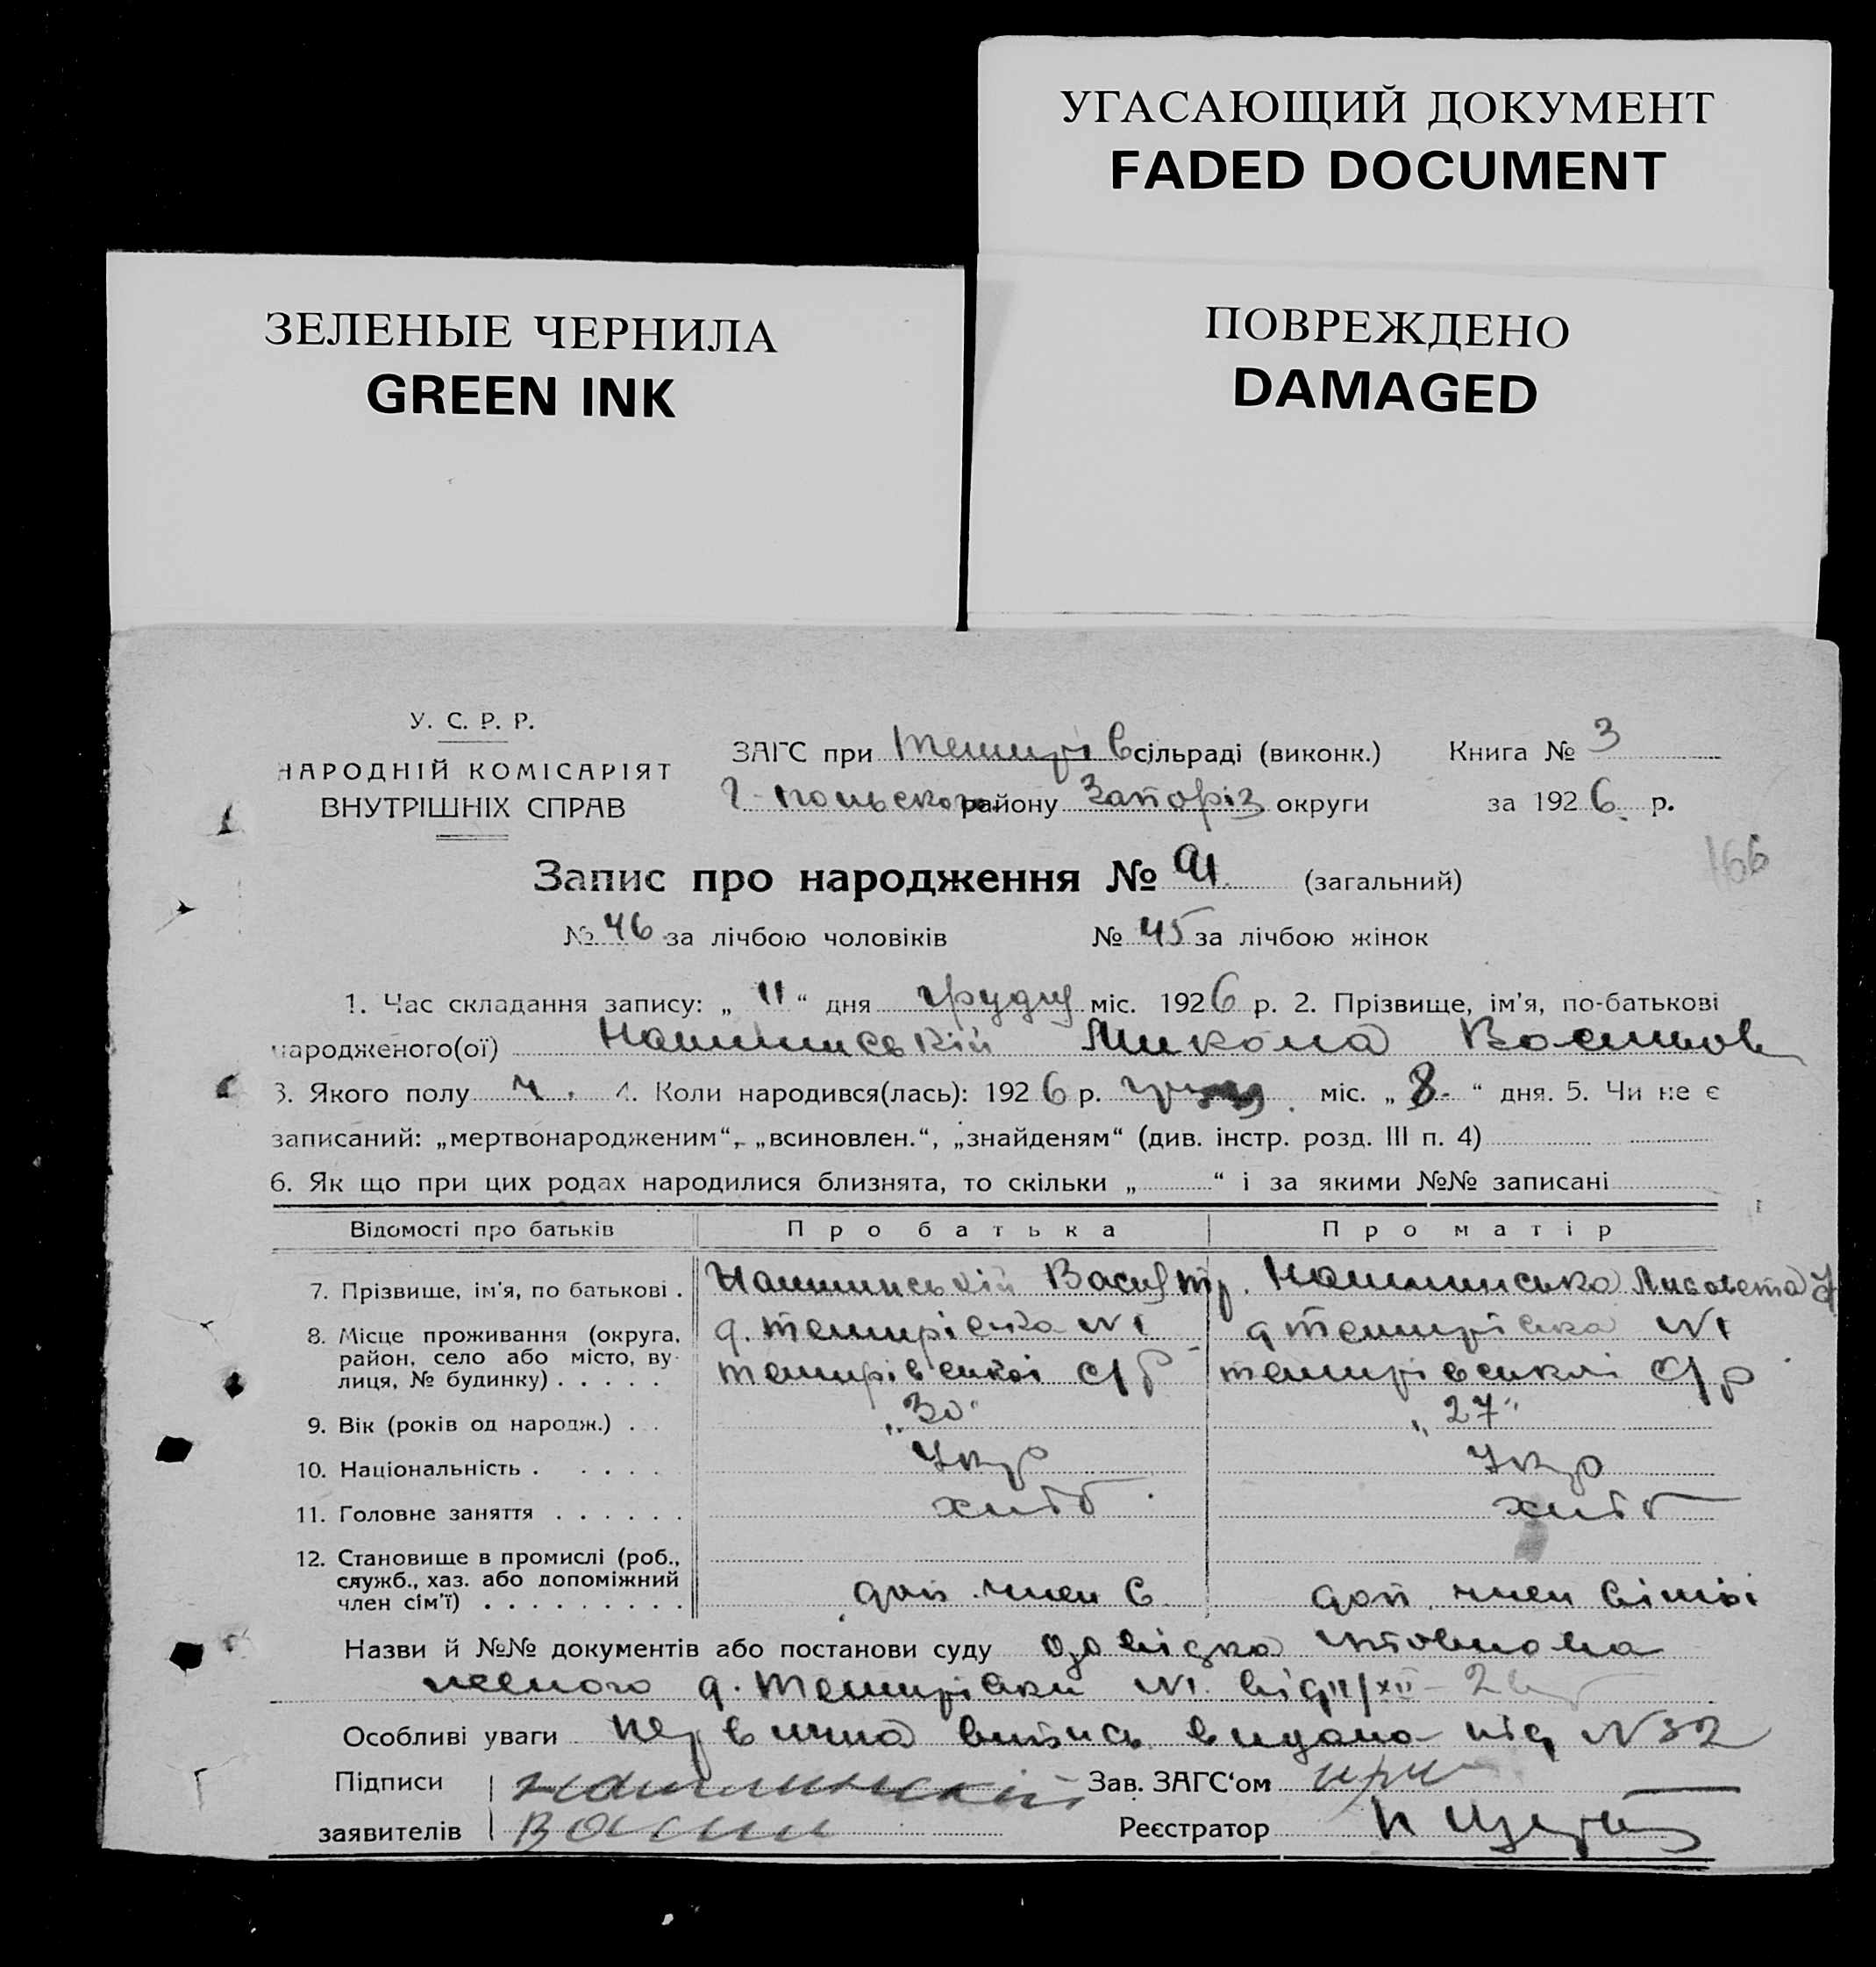 УГАСАЮЩИЙ ДОКУМЕНТ
FADED DOCUMENT
ЗЕЛЕНЫЕ ЧЕРНИЛА
GREEN INK
ПОВРЕЖДЕНО
DAMAGED
У. С. Р. Р.
НАРОДНІЙ КОМІСАРІЯТ
ВНУТРІШНІХ СПРАВ
ЗАГС при Темирів сільраді (виконк.) Книга № 3
Г-польского району Запоріз округи за 1926 р.
166
Запис про народження № 91 (загальний)
№ 46 за лічбою чоловіків № 45 за лічбою жінок
1. Час складання запису: „ 11 “ дня грудня міс. 1926 р. 2. Прізвище, ім'я, по-батькові
народженого(ої) Микола Васильов
3. Якого полу ч. 4. Коли народився(лась): 1926 р. грудня міс. „ 8 “ дня. 5. Чи не є
записаний: „мертвонародженим“, „всиновлен.“, „знайденям“ (див. інстр. розд. III п. 4)
6. Як що при цих родах народилися близнята, то скільки „ “ і за якими №№ записані
Відомості про батьків Про батька Про матір
7. Прізвище, ім'я, по батькові . Васил Лисовета
8. Місце проживання (округа, д. Темирівка N1 д Темирівка N1
район, село або місто, ву-
лиця, № будинку) . . . . . Темирівської с/р Темирівської с/р
9. Вік (років од народж.) . . „30“ „27“
10. Національність . . . . . Укр Укр
11. Головне заняття . . . . . . хліб хліб
12. Становище в промислі (роб.,
служб., хаз. або допоміжний
член сім'ї) . . . . . . . . . доп. член с доп. член сімьі
Назви й №№ документів або постанови суду довідка
д. Темирівки N1 від 11/XII-26
Особливі уваги первична випись видана під N 32
Підписи Зав. ЗАГС'ом
заявителів Васил Реєстратор